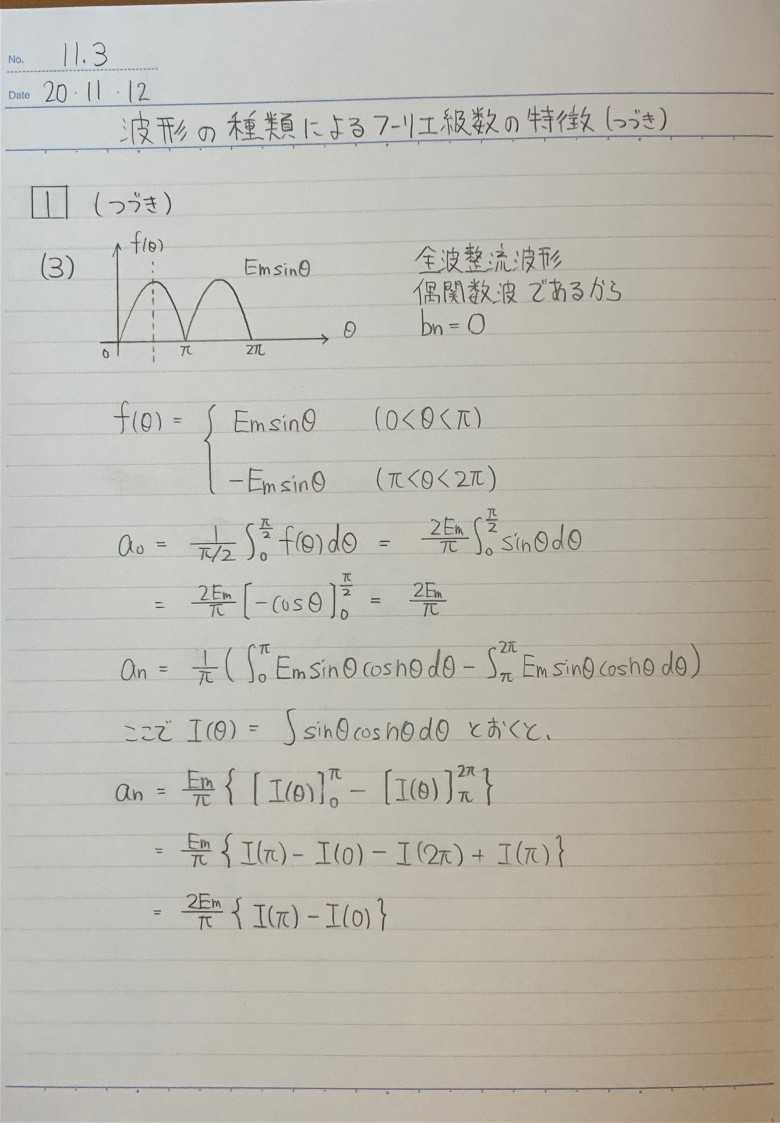 No. 11.3
Date 20・11・12
波形の種類によるフーリエ級数の特徴(つづき)
1 (つづき)
(3) f(θ) Emsinθ 0 π 2π θ
全波整流波形
偶関数波であるから
bn = 0
f(θ) = { Emsinθ (0<θ<π)
-Emsinθ (π<θ<2π)
a₀ = 1/(π/2) ∫₀^(π/2) f(θ)dθ = 2Em/π ∫₀^(π/2) sinθdθ
= 2Em/π [-cosθ]₀^(π/2) = 2Em/π
an = 1/π (∫₀^π Emsinθcosnθdθ - ∫π^2π Emsinθcosnθdθ)
ここで I(θ) = ∫sinθcosnθdθ とおくと、
an = Em/π { [I(θ)]₀^π - [I(θ)]π^2π }
= Em/π { I(π) - I(0) - I(2π) + I(π) }
= 2Em/π { I(π) - I(0) }